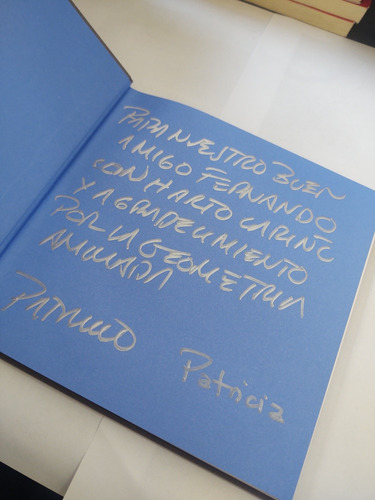 PARA NUESTRO BUEN
AMIGO FERNANDO
CON HARTO CARIÑO
Y AGRADECIMIENTO
POR LA GEOMETRIA
APLICADA
PATRICIO
Patricia